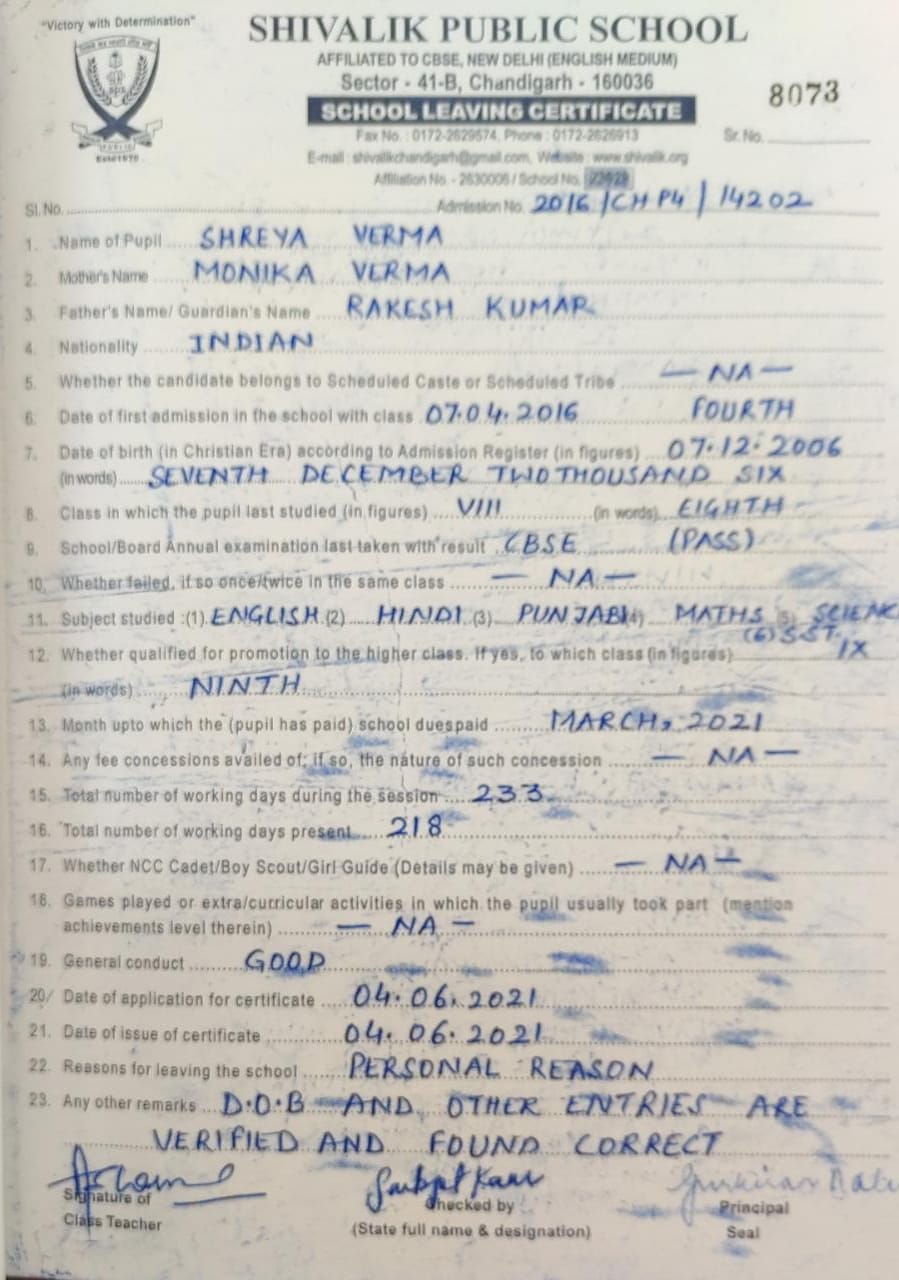 "Victory with Determination"
SHIVALIK PUBLIC SCHOOL
AFFILIATED TO CBSE, NEW DELHI (ENGLISH MEDIUM)
Sector - 41-B, Chandigarh - 160036
8073
SCHOOL LEAVING CERTIFICATE
Fax No. : 0172-2629574, Phone : 0172-2626913
Sr. No.
E-mail : shivalikchandigarh@gmail.com, Website : www.shivalik.org
Affiliation No. - 2630006 / School No.
Sl. No. Admission No. 2016/CHP4/14202
1. Name of Pupil SHREYA VERMA
2. Mother's Name MONIKA VERMA
3. Father's Name/ Guardian's Name RAKESH KUMAR
4. Nationality INDIAN
5. Whether the candidate belongs to Scheduled Caste or Scheduled Tribe — NA —
6. Date of first admission in the school with class 07.04.2016 FOURTH
7. Date of birth (in Christian Era) according to Admission Register (in figures) 07.12.2006
(in words) SEVENTH DECEMBER TWO THOUSAND SIX
8. Class in which the pupil last studied (in figures) VIII (in words) EIGHTH
9. School/Board Annual examination last taken with result CBSE (PASS)
10. Whether failed, if so once/twice in the same class — NA —
11. Subject studied :(1) ENGLISH (2) HINDI (3) PUNJABI (4) MATHS (5) SCIENC
(6) SST.
12. Whether qualified for promotion to the higher class. If yes, to which class (in figures) IX
(in words) NINTH
13. Month upto which the (pupil has paid) school duespaid MARCH, 2021
14. Any fee concessions availed of; if so, the nature of such concession — NA —
15. Total number of working days during the session 233
16. Total number of working days present 218
17. Whether NCC Cadet/Boy Scout/Girl Guide (Details may be given) — NA —
18. Games played or extra/curricular activities in which the pupil usually took part (mention
achievements level therein) — NA —
19. General conduct GOOD
20/ Date of application for certificate 04.06.2021
21. Date of issue of certificate 04.06.2021
22. Reasons for leaving the school PERSONAL REASON
23. Any other remarks D.O.B AND OTHER ENTRIES ARE
VERIFIED AND FOUND CORRECT
Signature of
Class Teacher
Checked by
(State full name & designation)
Principal
Seal